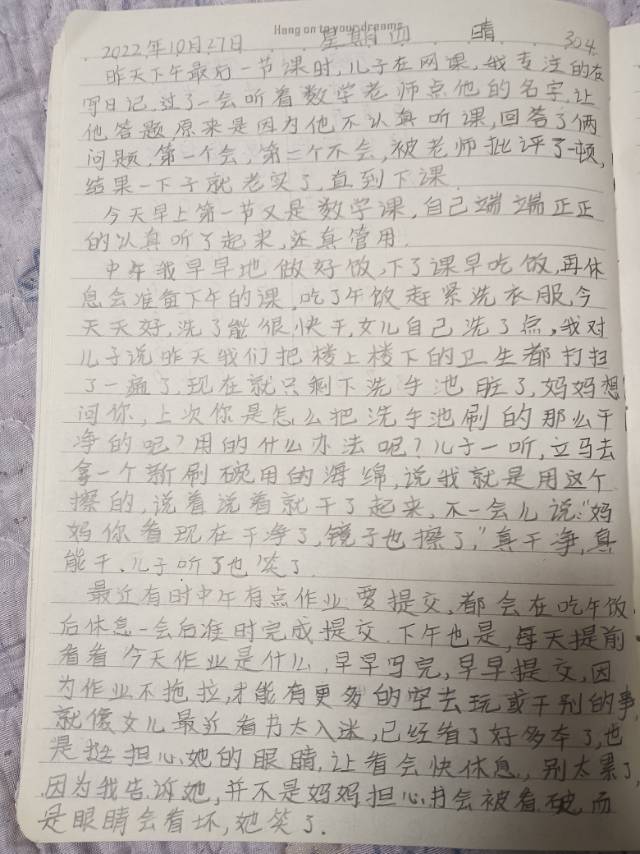 Hang on to your dreams
2022年10月27日 星期四 晴 304
昨天下午最后一节课时,儿子在网课,我专注的在
写日记,过了一会听着数学老师点他的名字,让
他答题原来是因为他不认真听课,回答了俩
问题,第一个会,第二个不会,被老师批评了一顿,
结果一下子就老实了,直到下课.
今天早上第一节又是数学课,自己端端正正
的认真听了起来,还真管用.
中午我早早地做好饭,下了课早吃饭,再休
息会准备下午的课,吃了午饭赶紧洗衣服,今
天天好,洗了能很快干,女儿自己洗了点,我对
儿子说昨天我们把楼上楼下的卫生都打扫
了一遍了,现在就只剩下洗手池脏了,妈妈想
问你,上次你是怎么把洗手池刷的那么干
净的呢?用的什么办法呢?儿子一听,立马去
拿一个新刷碗用的海绵,说我就是用这个
擦的,说着说着就干了起来,不一会儿说:"妈
妈你看现在干净了,镜子也擦了,"真干净,真
能干,儿子听了也笑了.
最近有时中午有点作业要提交,都会在吃午饭
后休息一会后准时完成提交.下午也是,每天提前
看看今天作业是什么,早早写完,早早提交,因
为作业不拖拉,才能有更多的空去玩或干别的事,
就像女儿最近看书太入迷,已经看了好多本了,也
是担心她的眼睛,让看会快休息,别太累了,
因为我告诉她,并不是妈妈担心书会被看破,而
是眼睛会看坏,她笑了.